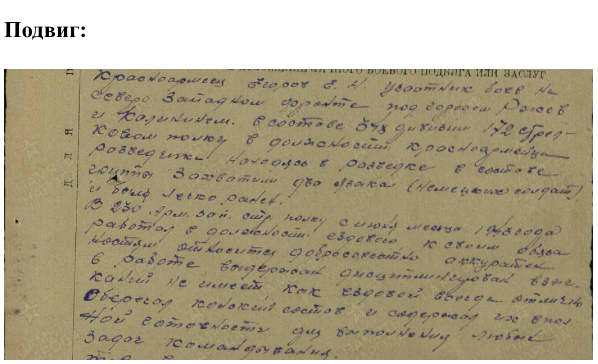 Подвиг:
БОЕВОГО ПОДВИГА ИЛИ ЗАСЛУГ
Красноармеец Егоров участник боев на
Северо Западном фронте под городом Ржев
и Калинином. в составе дивизии 172 стрел-
ковом полку в должности красноармейца
разведчика. Находясь в разведке в составе
группы захватили два языка (немецких солдат)
и был легко ранен.
В 230 Арм. зап. стр полку с июня месяца 1943 года
работал в должности ездового к своим обяза
ностям относится добросовестно аккуратен
в работе выдержан дисциплинирован взыс-
каний не имеет как ездовой всегда отлично
сберегал конский состав и содержал их в пол
ной готовности для выполнения любых
задач командования.
Д Л Я